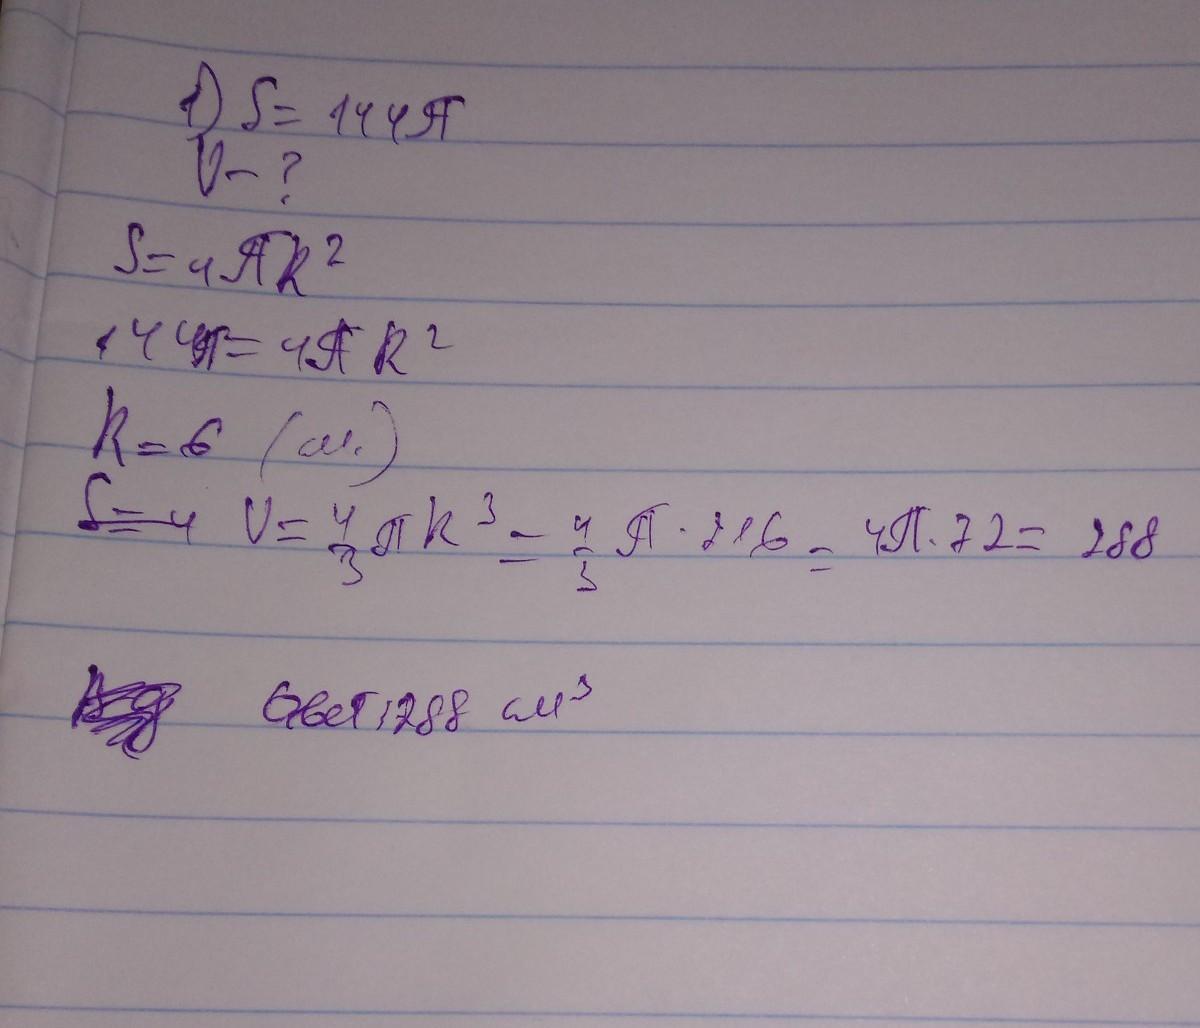 1) S= 144π
V-?
S=4πR²
144π=4πR²
R=6 (см.)
S=4 V=4/3πR³=4/3π·216=4π·72=288
Ответ:288 см³